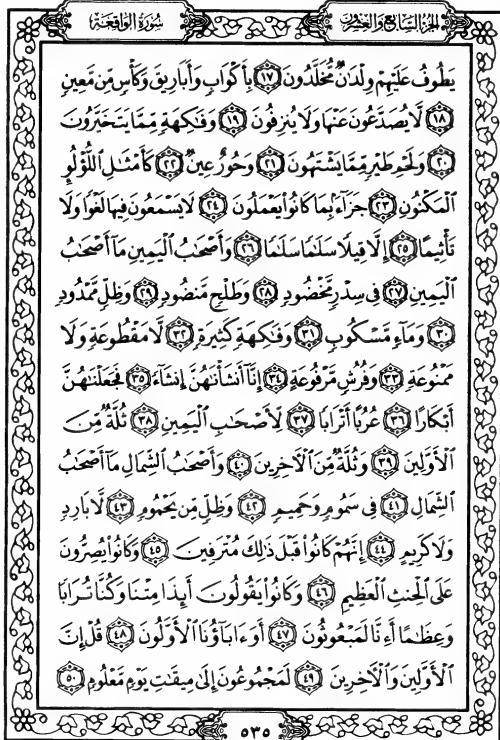 الجزء السابع والعشرون
سورة الواقعة
يَطُوفُ عَلَيْهِمْ وِلْدَٰنٌ مُّخَلَّدُونَ ﴿١٧﴾ بِأَكْوَابٍ وَأَبَارِيقَ وَكَأْسٍ مِّن مَّعِينٍ
﴿١٨﴾ لَّا يُصَدَّعُونَ عَنْهَا وَلَا يُنزِفُونَ ﴿١٩﴾ وَفَٰكِهَةٍ مِّمَّا يَتَخَيَّرُونَ
﴿٢٠﴾ وَلَحْمِ طَيْرٍ مِّمَّا يَشْتَهُونَ ﴿٢١﴾ وَحُورٌ عِينٌ ﴿٢٢﴾ كَأَمْثَٰلِ اللُّؤْلُؤِ
الْمَكْنُونِ ﴿٢٣﴾ جَزَآءً بِمَا كَانُوا۟ يَعْمَلُونَ ﴿٢٤﴾ لَا يَسْمَعُونَ فِيهَا لَغْوًا وَلَا
تَأْثِيمًا ﴿٢٥﴾ إِلَّا قِيلًا سَلَٰمًا سَلَٰمًا ﴿٢٦﴾ وَأَصْحَٰبُ الْيَمِينِ مَآ أَصْحَٰبُ
الْيَمِينِ ﴿٢٧﴾ فِى سِدْرٍ مَّخْضُودٍ ﴿٢٨﴾ وَطَلْحٍ مَّنضُودٍ ﴿٢٩﴾ وَظِلٍّ مَّمْدُودٍ
﴿٣٠﴾ وَمَآءٍ مَّسْكُوبٍ ﴿٣١﴾ وَفَٰكِهَةٍ كَثِيرَةٍ ﴿٣٢﴾ لَّا مَقْطُوعَةٍ وَلَا
مَمْنُوعَةٍ ﴿٣٣﴾ وَفُرُشٍ مَّرْفُوعَةٍ ﴿٣٤﴾ إِنَّآ أَنشَأْنَٰهُنَّ إِنشَآءً ﴿٣٥﴾ فَجَعَلْنَٰهُنَّ
أَبْكَارًا ﴿٣٦﴾ عُرُبًا أَتْرَابًا ﴿٣٧﴾ لِّأَصْحَٰبِ الْيَمِينِ ﴿٣٨﴾ ثُلَّةٌ مِّنَ
الْأَوَّلِينَ ﴿٣٩﴾ وَثُلَّةٌ مِّنَ الْآخِرِينَ ﴿٤٠﴾ وَأَصْحَٰبُ الشِّمَالِ مَآ أَصْحَٰبُ
الشِّمَالِ ﴿٤١﴾ فِى سَمُومٍ وَحَمِيمٍ ﴿٤٢﴾ وَظِلٍّ مِّن يَحْمُومٍ ﴿٤٣﴾ لَّا بَارِدٍ
وَلَا كَرِيمٍ ﴿٤٤﴾ إِنَّهُمْ كَانُوا۟ قَبْلَ ذَٰلِكَ مُتْرَفِينَ ﴿٤٥﴾ وَكَانُوا۟ يُصِرُّونَ
عَلَى الْحِنثِ الْعَظِيمِ ﴿٤٦﴾ وَكَانُوا۟ يَقُولُونَ أَئِذَا مِتْنَا وَكُنَّا تُرَابًا
وَعِظَٰمًا أَءِنَّا لَمَبْعُوثُونَ ﴿٤٧﴾ أَوَءَابَآؤُنَا الْأَوَّلُونَ ﴿٤٨﴾ قُلْ إِنَّ
الْأَوَّلِينَ وَالْآخِرِينَ ﴿٤٩﴾ لَمَجْمُوعُونَ إِلَىٰ مِيقَٰتِ يَوْمٍ مَّعْلُومٍ ﴿٥٠﴾
٥٣٥